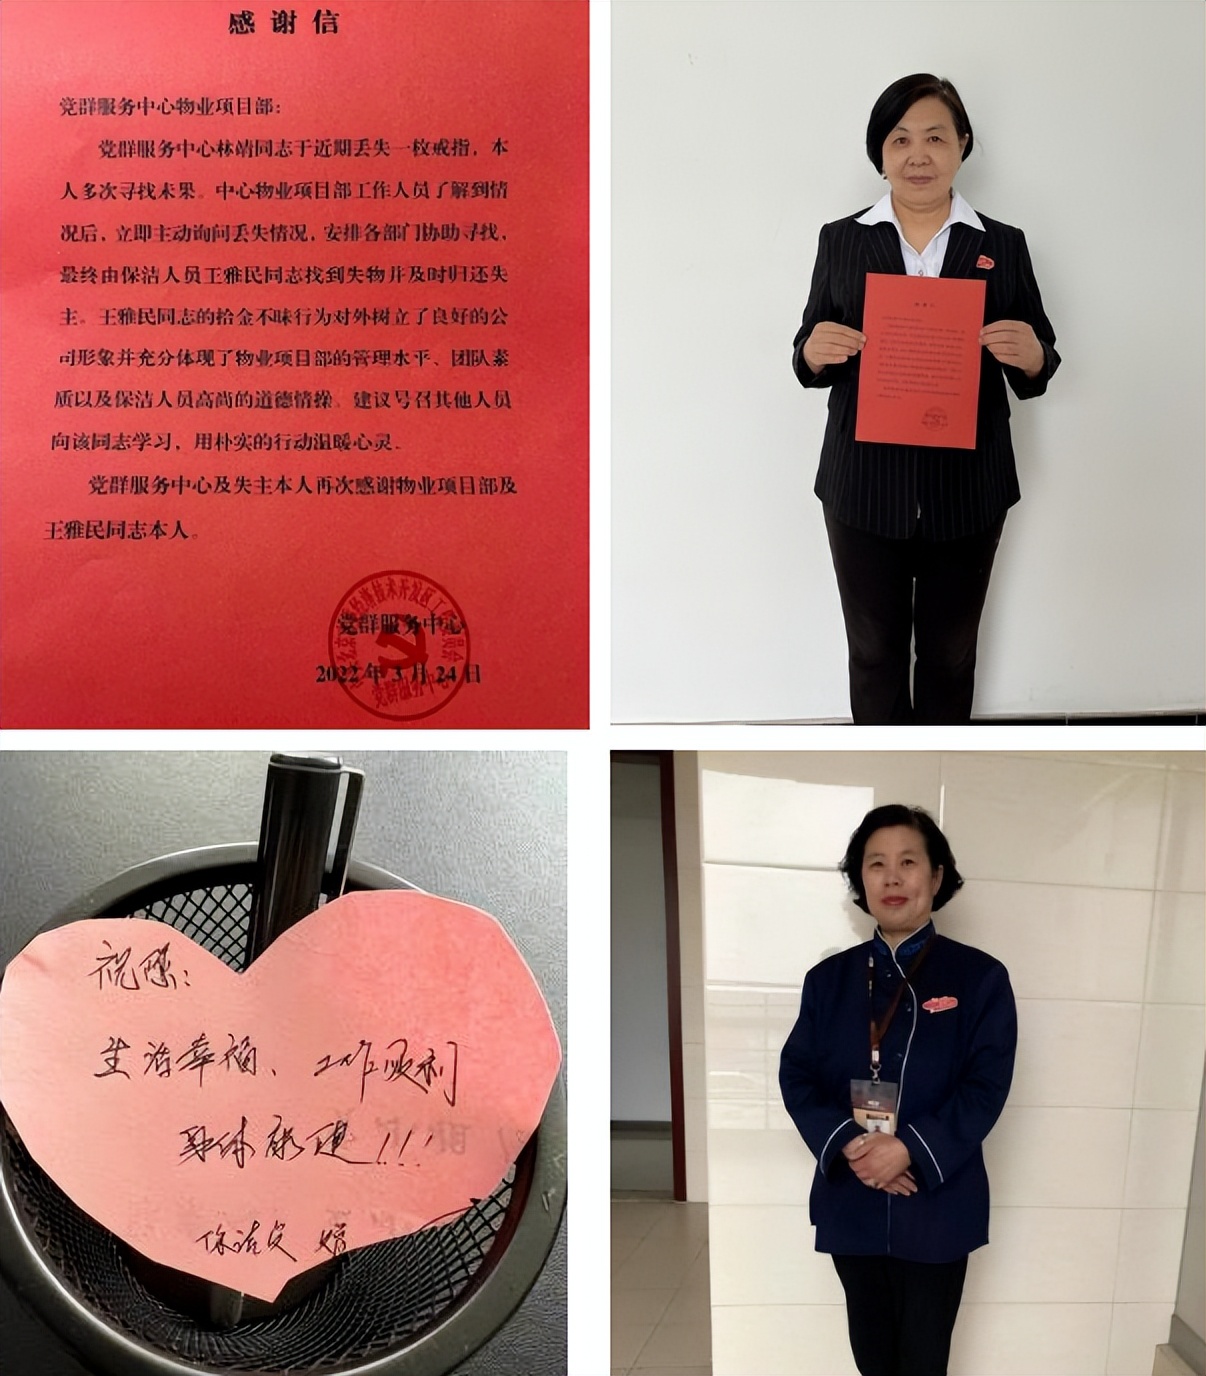 感谢信
党群服务中心物业项目部：
党群服务中心林靖同志于近期丢失一枚戒指，本
人多次寻找未果。中心物业项目部工作人员了解到情
况后，立即主动询问丢失情况，安排各部门协助寻找，
最终由保洁人员王雅民同志找到失物并及时归还失
主。王雅民同志的拾金不昧行为对外树立了良好的公
司形象并充分体现了物业项目部的管理水平、团队素
质以及保洁人员高尚的道德情操。建议号召其他人员
向该同志学习，用朴实的行动温暖心灵。
党群服务中心及失主本人再次感谢物业项目部及
王雅民同志本人。
党群服务中心
2022年3月24日
党群服务中心
祝您：
生活幸福、工作顺利
身体康健！！！
保洁员 赠